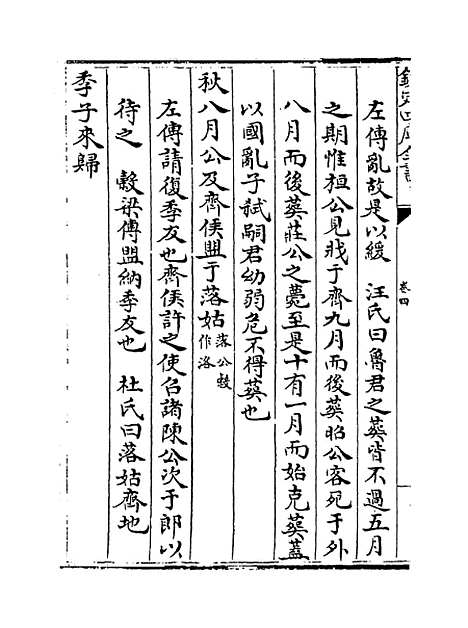 欽定四庫全書
卷四
左傳亂故是以緩　汪氏曰魯君之葬皆不過五月
之期惟桓公見戕于齊九月而後葬昭公客死于外
八月而後葬莊公之薨至是十有一月而始克葬蓋
以國亂子弑嗣君幼弱危不得葬也
秋八月公及齊侯盟于落姑落公穀作洛
左傳請復季友也齊侯許之使召諸陳公次于郎以
待之　穀梁傳盟納季友也　杜氏曰落姑齊地
季子來歸